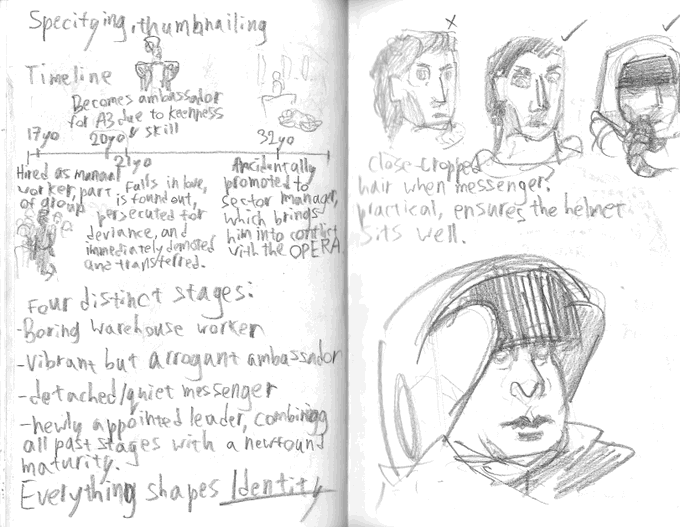 Specifying, thumbnailing
Timeline
Becomes ambassador
for A3 due to keenness
& skill
17yo
20yo
32yo
21yo
Hired as manual
worker, part
of group
Falls in love,
is found out,
persecuted for
deviance, and
immediately demoted
and transferred.
Accidentally
promoted to
sector manager,
which brings
him into conflict
with the OPERA.
Four distinct stages:
-Boring warehouse worker
-Vibrant but arrogant ambassador
-detached/quiet messenger
-newly appointed leader, combining
all past stages with a newfound
maturity.
Everything shapes Identity
x
close-cropped
hair when messenger.
practical, ensures the helmet
sits well.